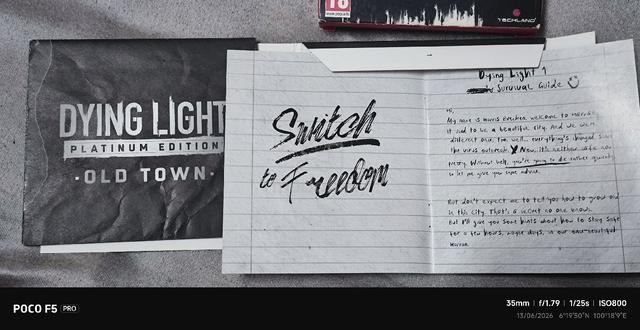 18
www.pegi.info
TECHLAND
DYING LIGHT
PLATINUM EDITION
·OLD TOWN·
Switch
to Freedom
Dying Light 1
Survival Guide
Hi,
My name is Harris Brecken, welcome to Harran.
It used to be a beautiful city. And we were
different one, too. Well... everything's changed since
the virus outbreak. Now, it's neither safe nor
pretty. Without help, you're going to die rather quickly
so let me give you some advice.
But don't expect me to tell you how to grow old
in this city. That's a secret no one knows.
But I'll give you some hints about how to stay safe
for a few hours, maybe days, in our once-beautiful
Harran.
POCO F5 PRO
35mm | f/1.79 | 1/25s | ISO800
13/06/2026 6°19'50"N 100°18'9"E